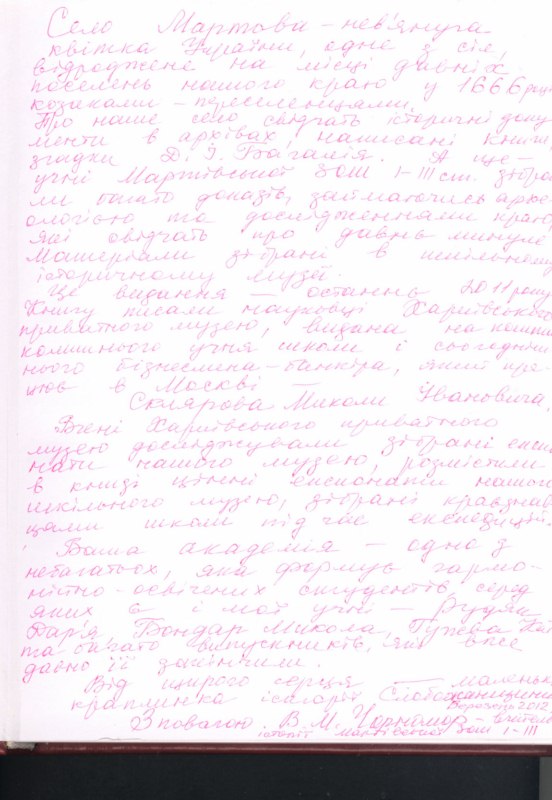 Село Мартова – нев'януча
квітка України, одне з сіл,
відроджене на місці давніх
поселень нашого краю у 1666 році
козаками – переселенцями.
Про наше село свідчать історичні доку
менти в архівах, написані книги,
згадки Д. І. Багалія. А ще –
учні Мартівської ЗОШ I–III ст. зібра
ли багато доказів, займаючись архе-
ологією та дослідженнями краю,
які свідчать про давнє минуле.
Матеріали зібрані в шкільному
історичному музеї.
Це видання – останнє 2011 року
Книгу писали науковці Харківського
приватного музею, видана на кошти
колишнього учня школи і сьогодніш
нього бізнесмена – банкіра, який пра-
цює в Москві –
Склярова Миколи Івановича.
Вчені Харківського приватного
музею досліджували зібрані експо
нати нашого музею, розмістили
в книзі цінні експонати нашого
шкільного музею, зібрані краєзнав
цями школи під час експедицій.
Ваша академія – одна з
небагатьох, яка формує гармо-
нійно-освічених студентів, серед
яких є і мої учні – Рудяк
Дар'я, Бондар Микола,
та багато випускників, які вже
давно її закінчили.
Від щирого серця – маленька
краплинка історії Слобожанщини
Березень 2012
З повагою. В. М. Чорномор – вчитель
історії Мартівської ЗОШ I–III